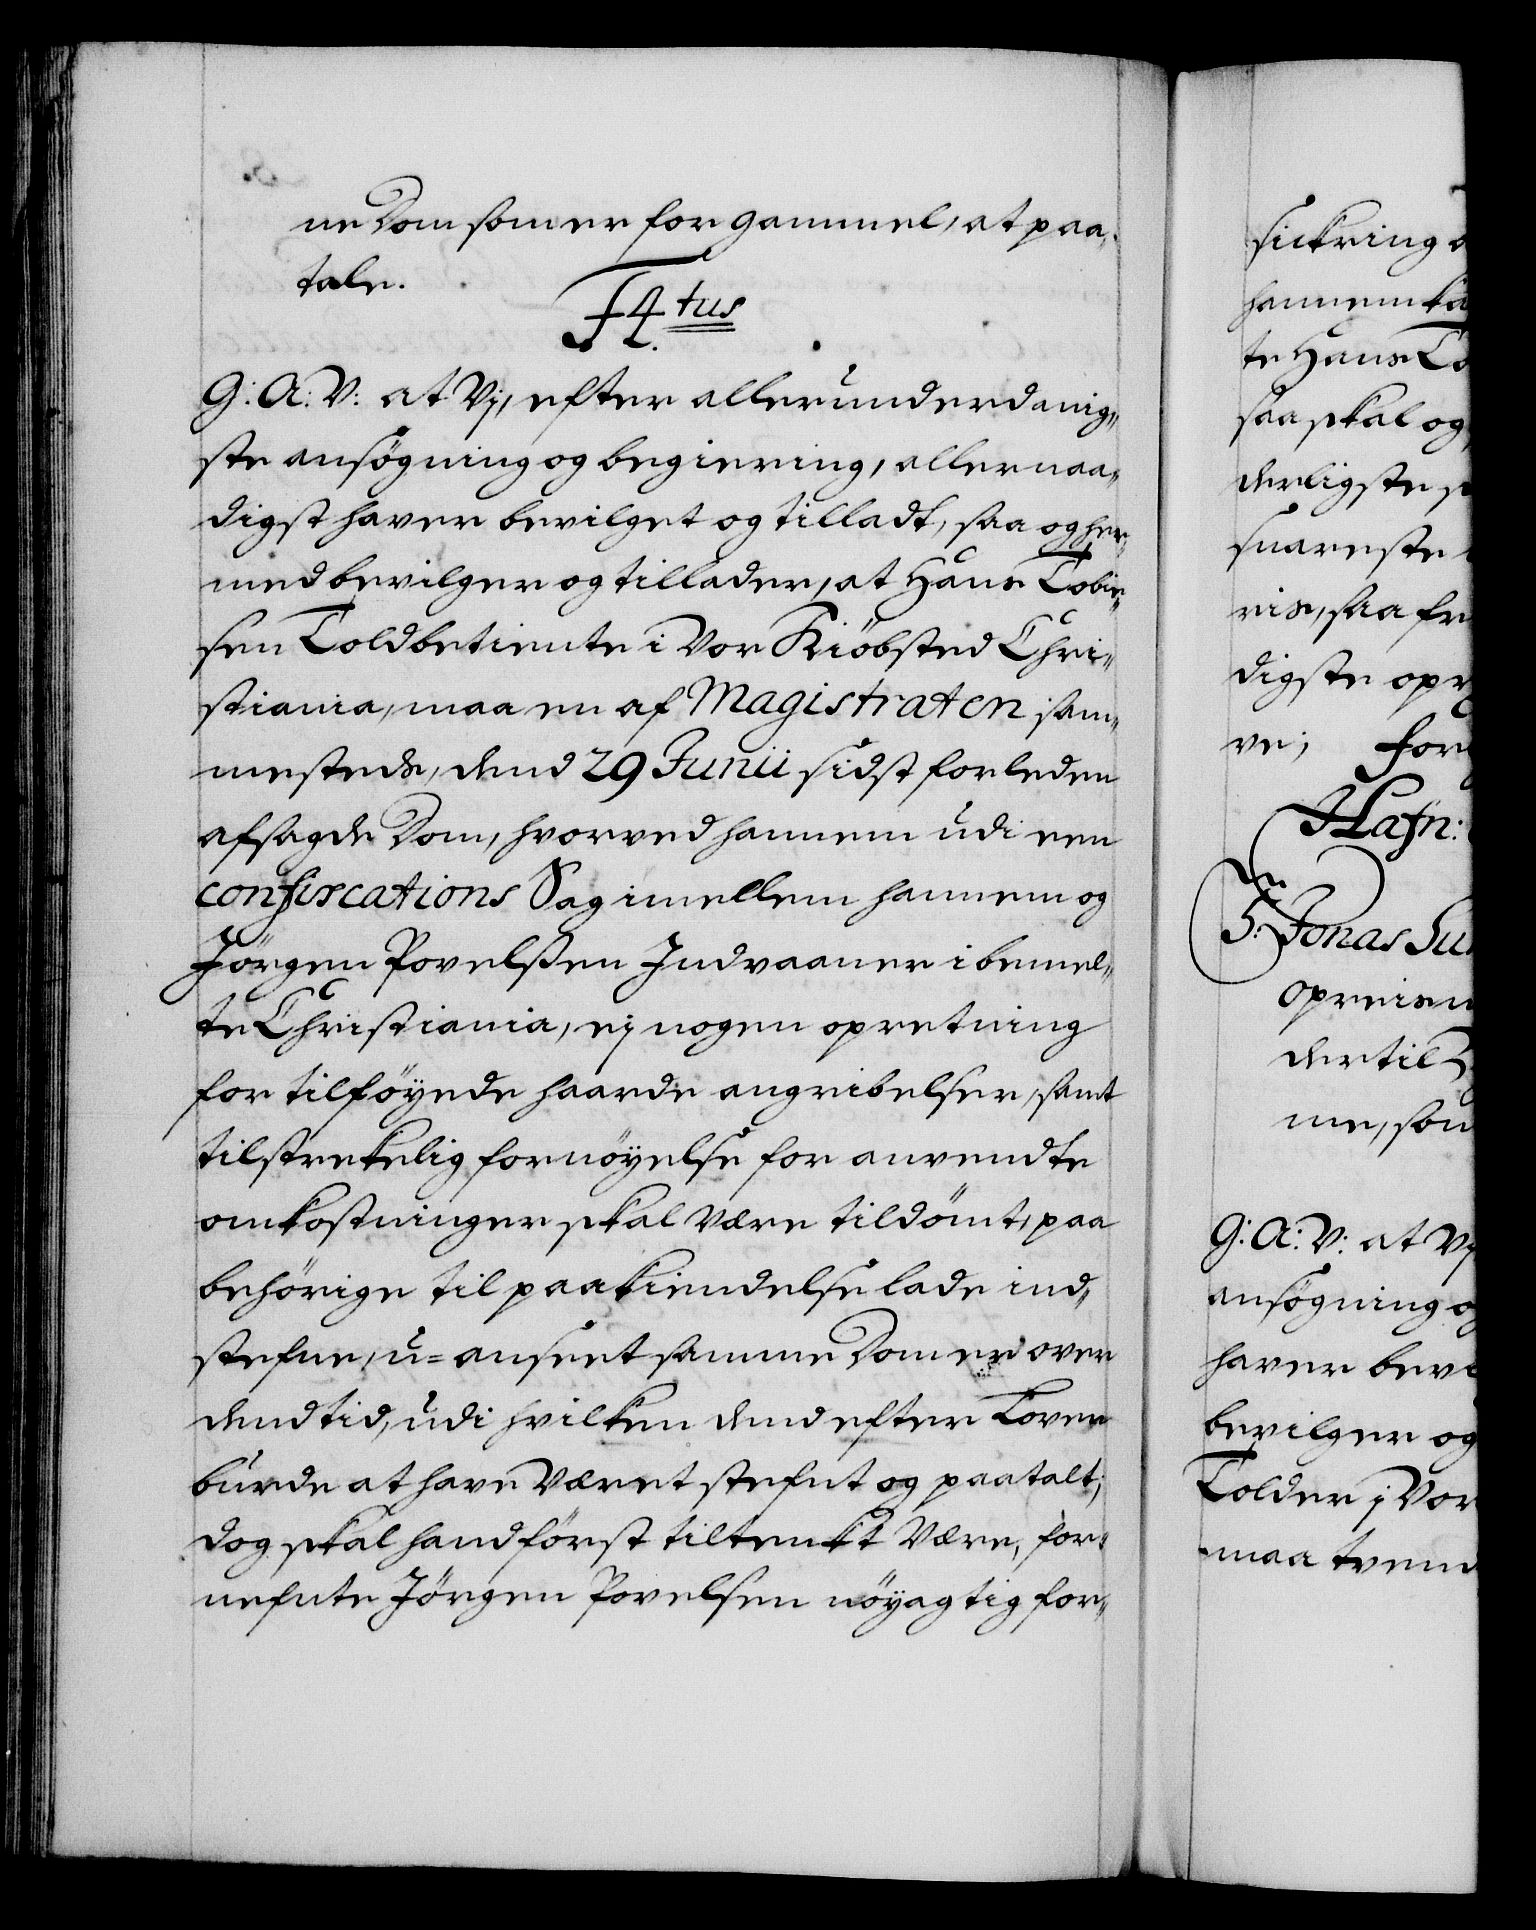 ne Dom som er for gammel, at paa„
tale.
F4.tus
G: A: V: at Vj, efter allerunderdanig„
ste ansögning og begiering, allernaa„
digst haver bevilget og tilladt, saa og her„
med bevilger og tillader, at Hans Tobie„
sen Toldbetiente i Vor Kiöbsted Chri„
stiania, maa en af Magistraten sam„
mesteds, dend 29 Junii sidst forleden
afsagde Dom, hvorved hannem udi een
confiscations Sag imellem hannem og
Jörgen Povelsßen Indvaaner i bemel„
te Christiania, ej nogen opretning
for tilföyede haarde angribelser, samt
tilstrekelig fornöyelse for anvendte
omkostninger skal være tildömt, paa
behörige til paakiendelse lade ind„
stefne, u=anseet samme Dom er over
dend tid, udi hvilken dend efter Loven
burde at have været stefnt og paatalt;
dog skal hand först tiltenkt være, for„
nefnte Jörgen Povelsen nöyagtig for„
sickring o
hannem ka
te Hans To
saa skal og
derligste
snareste
ris, saa fr
digste opr
ve; for
Hafn:
5. Jonas Lu
opreisn
dertil
me, som
G: A: V: at Vj
ansögning og
haver bevi
bevilger og
Tolder i Vor
maa tvend